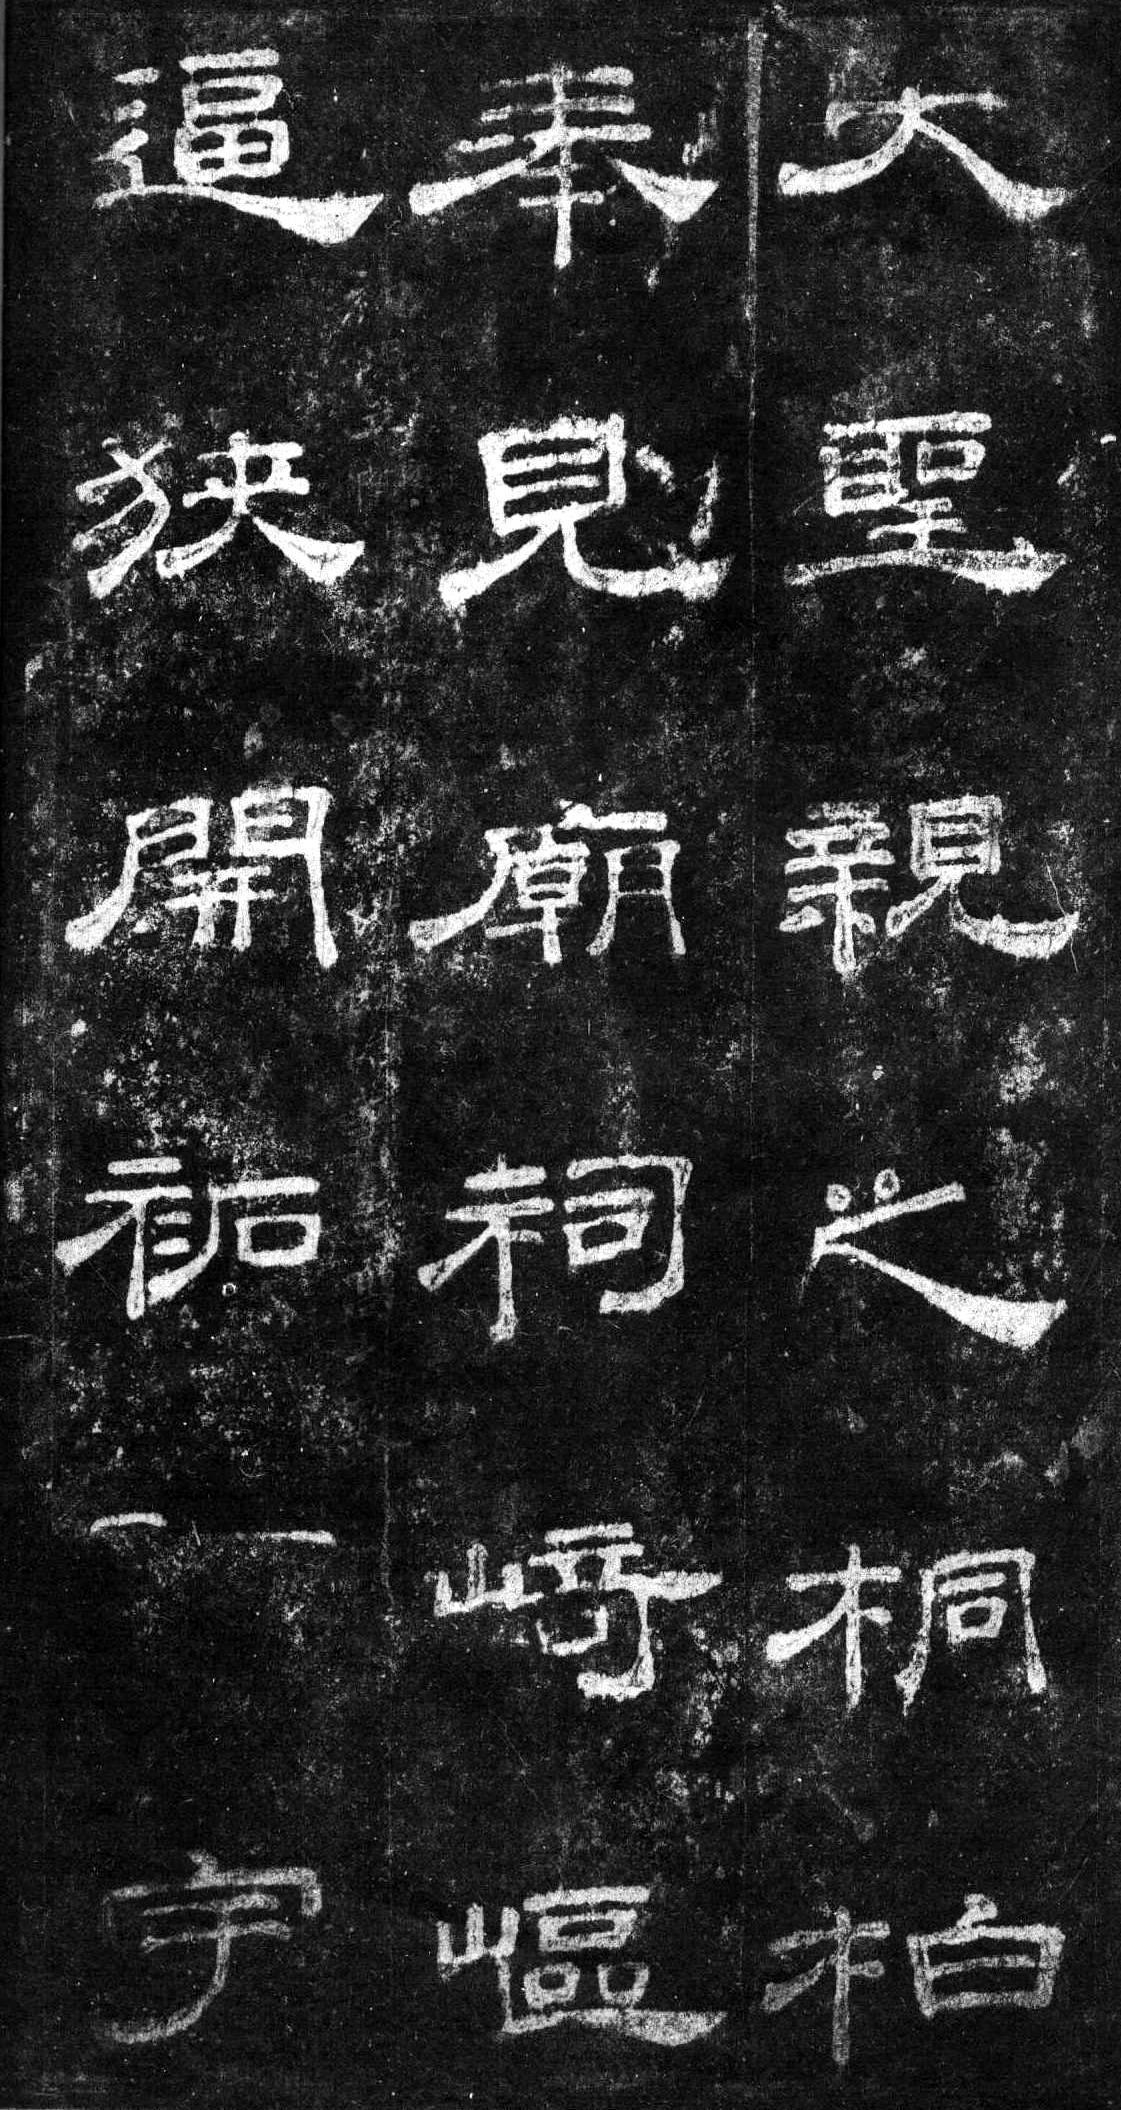 大聖親之桐柏
奉見廟祠崎嶇
逼狹開袥宇